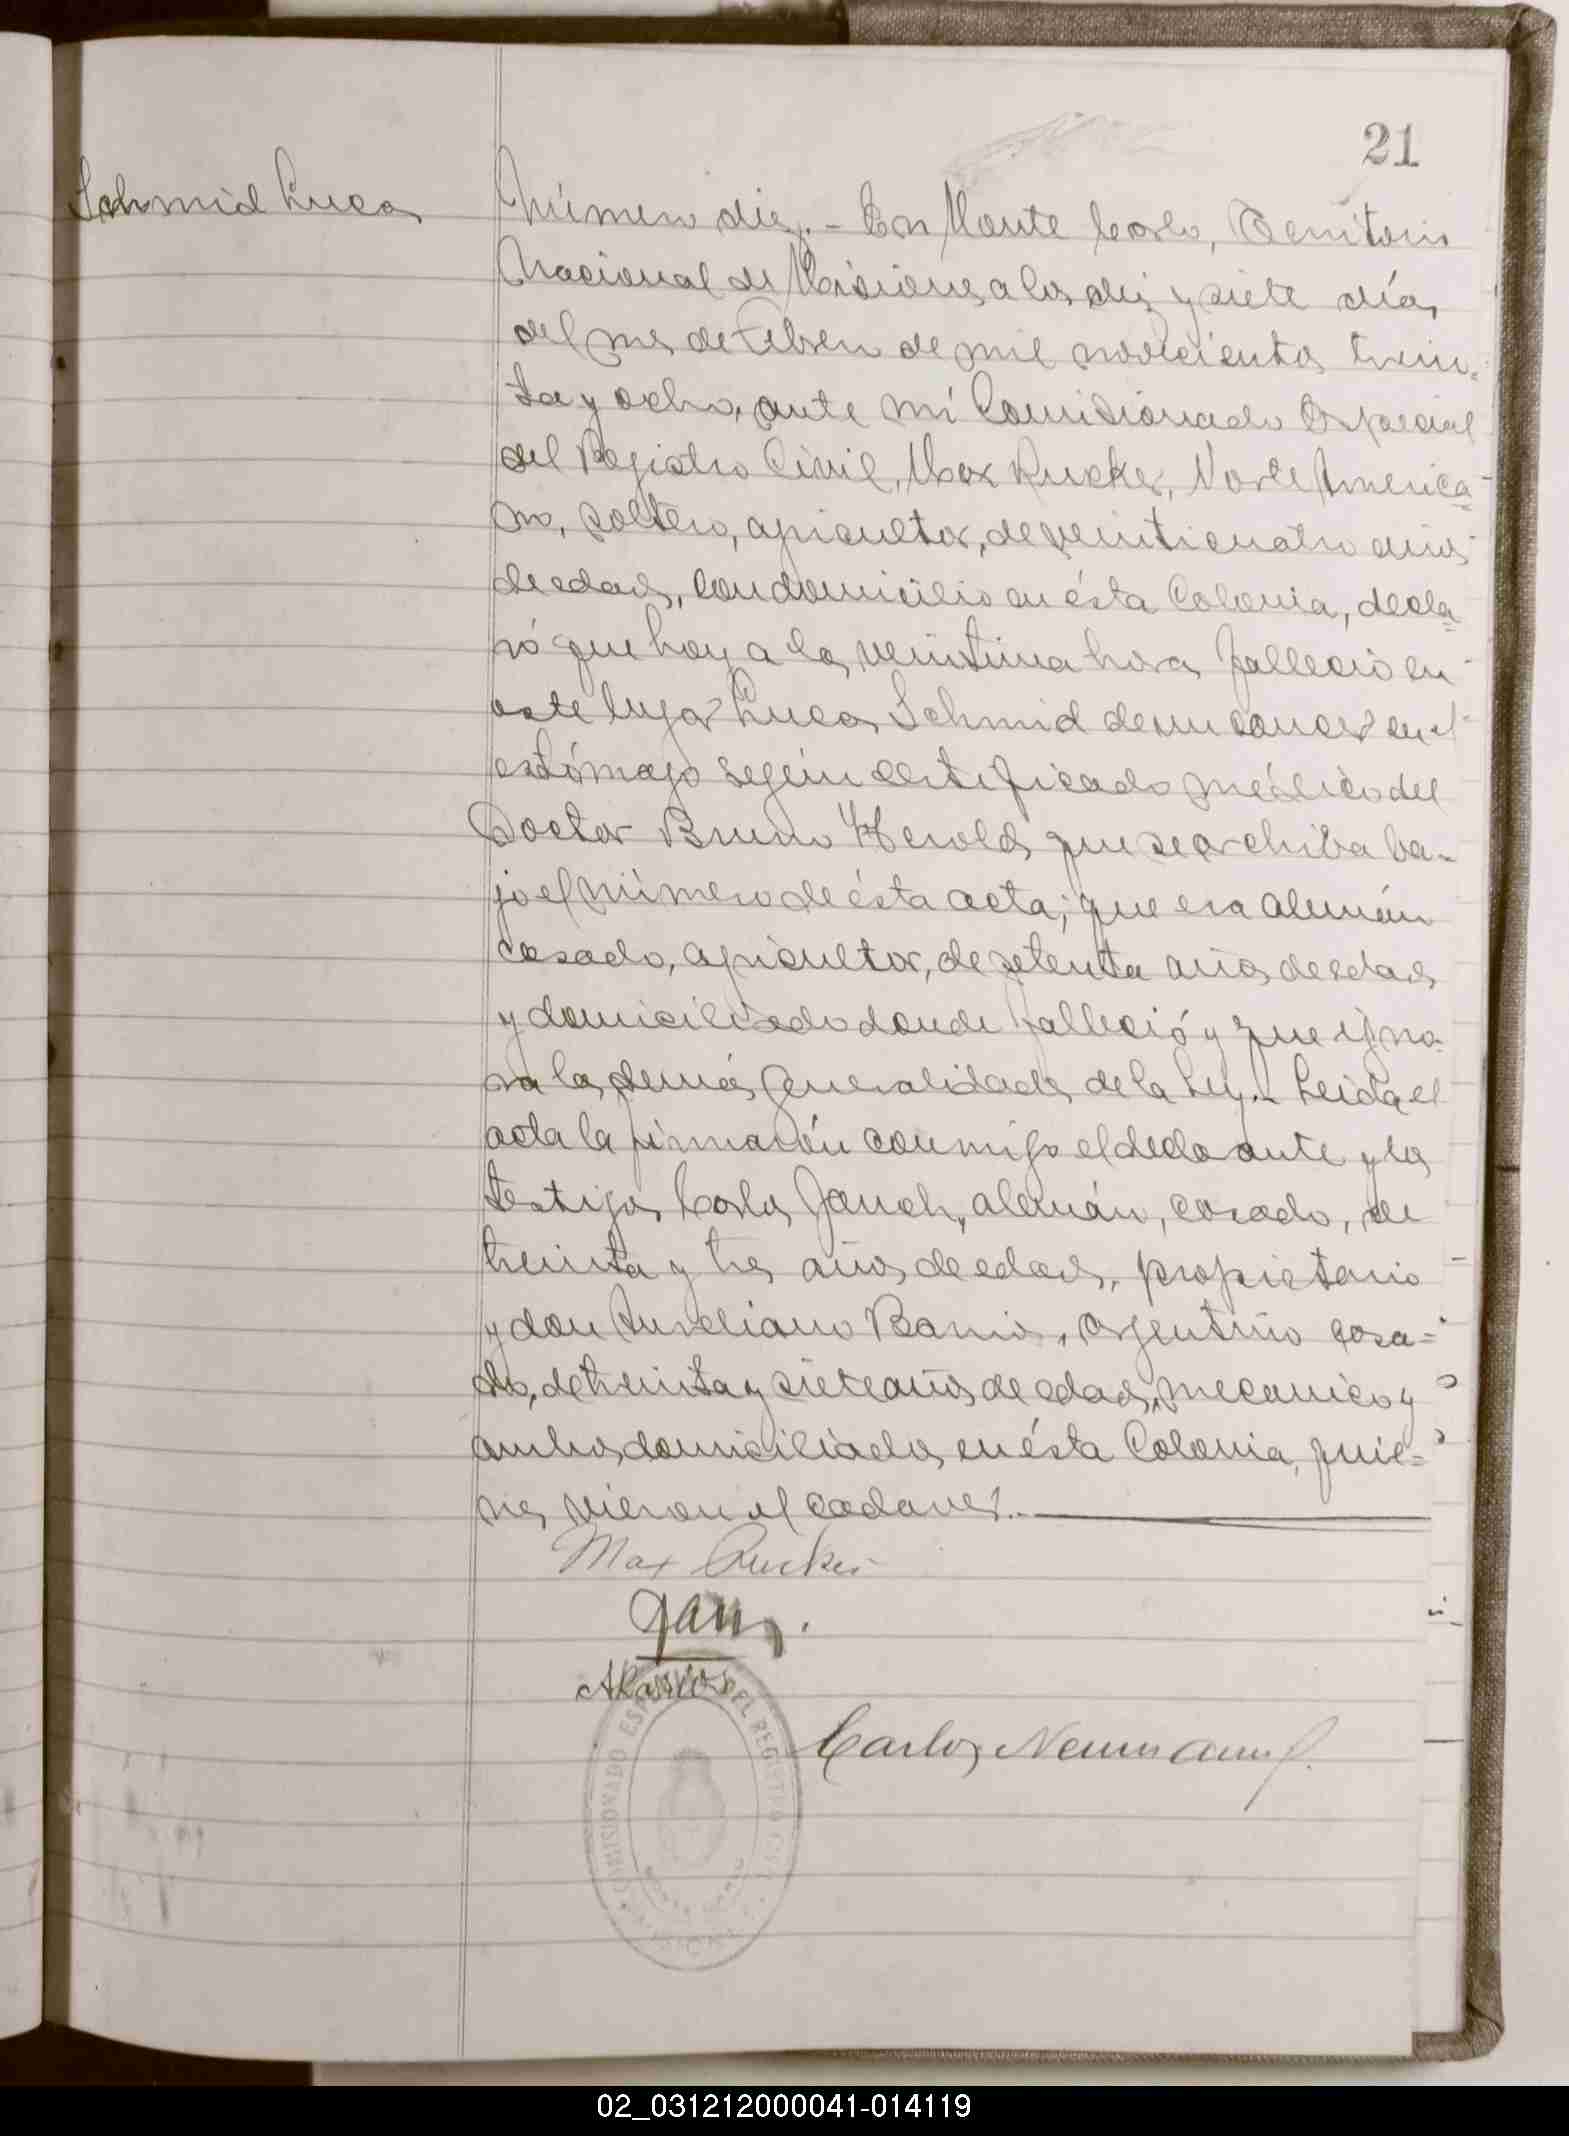 21
Schmid Lucas
Número diez.- En Monte Carlo, Territorio
Nacional de Misiones a los diez y siete días
del mes de Febrero de mil novecientos trein-
ta y ocho, ante mí Comisionado Especial
del Registro Civil, Max Rucker, Norte America-
no, soltero, agricultor, de veinticuatro años
de edad, con domicilio en ésta Colonia, decla-
ró que hoy a las veintiuna horas falleció en
este lugar Lucas Schmid de un cancer en el
estómago según certificado médico del
Doctor Bruno Herold, que se archiba ba-
jo el número de ésta acta; que era alemán
casado, agricultor, de setenta años de edad
y domiciliado donde falleció y que igno-
ra las demás generalidades de la Ley.- Leida el
acta la firmarón conmigo el declarante y los
testigos Carlos Jauch, alemán, casado, de
treinta y tres años de edad, propietario
y don Aureliano Barrios, argentino casa-
do, de treinta y siete años de edad, mecanico y
ambos domiciliados en ésta Colonia, quie-
nes vieron el cadaver.-
Max Rucker
ABarrios
Carlos Neumann
COMISIONADO ESPECIAL DEL REGISTRO CIVIL
02_031212000041-014119